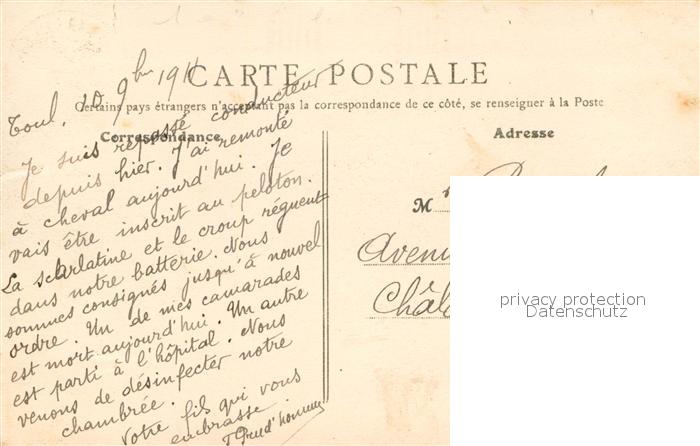 CARTE POSTALE
Certains pays étrangers n'acceptent pas la correspondance de ce côté, se renseigner à la Poste
Correspondance
Toul. 20 9bre 1911
Je suis repassé conducteur
depuis hier. J'ai remonté
à cheval aujourd'hui. Je
vais être inscrit au peloton.
La scarlatine et le croup règnent
dans notre batterie. Nous
sommes consignés jusqu'à nouvel
ordre. Un de mes camarades
est mort aujourd'hui. Un autre
est parti à l'hôpital. Nous
venons de désinfecter notre
chambrée.
Votre fils qui vous
embrasse
Adresse
M
privacy protection
Datenschutz